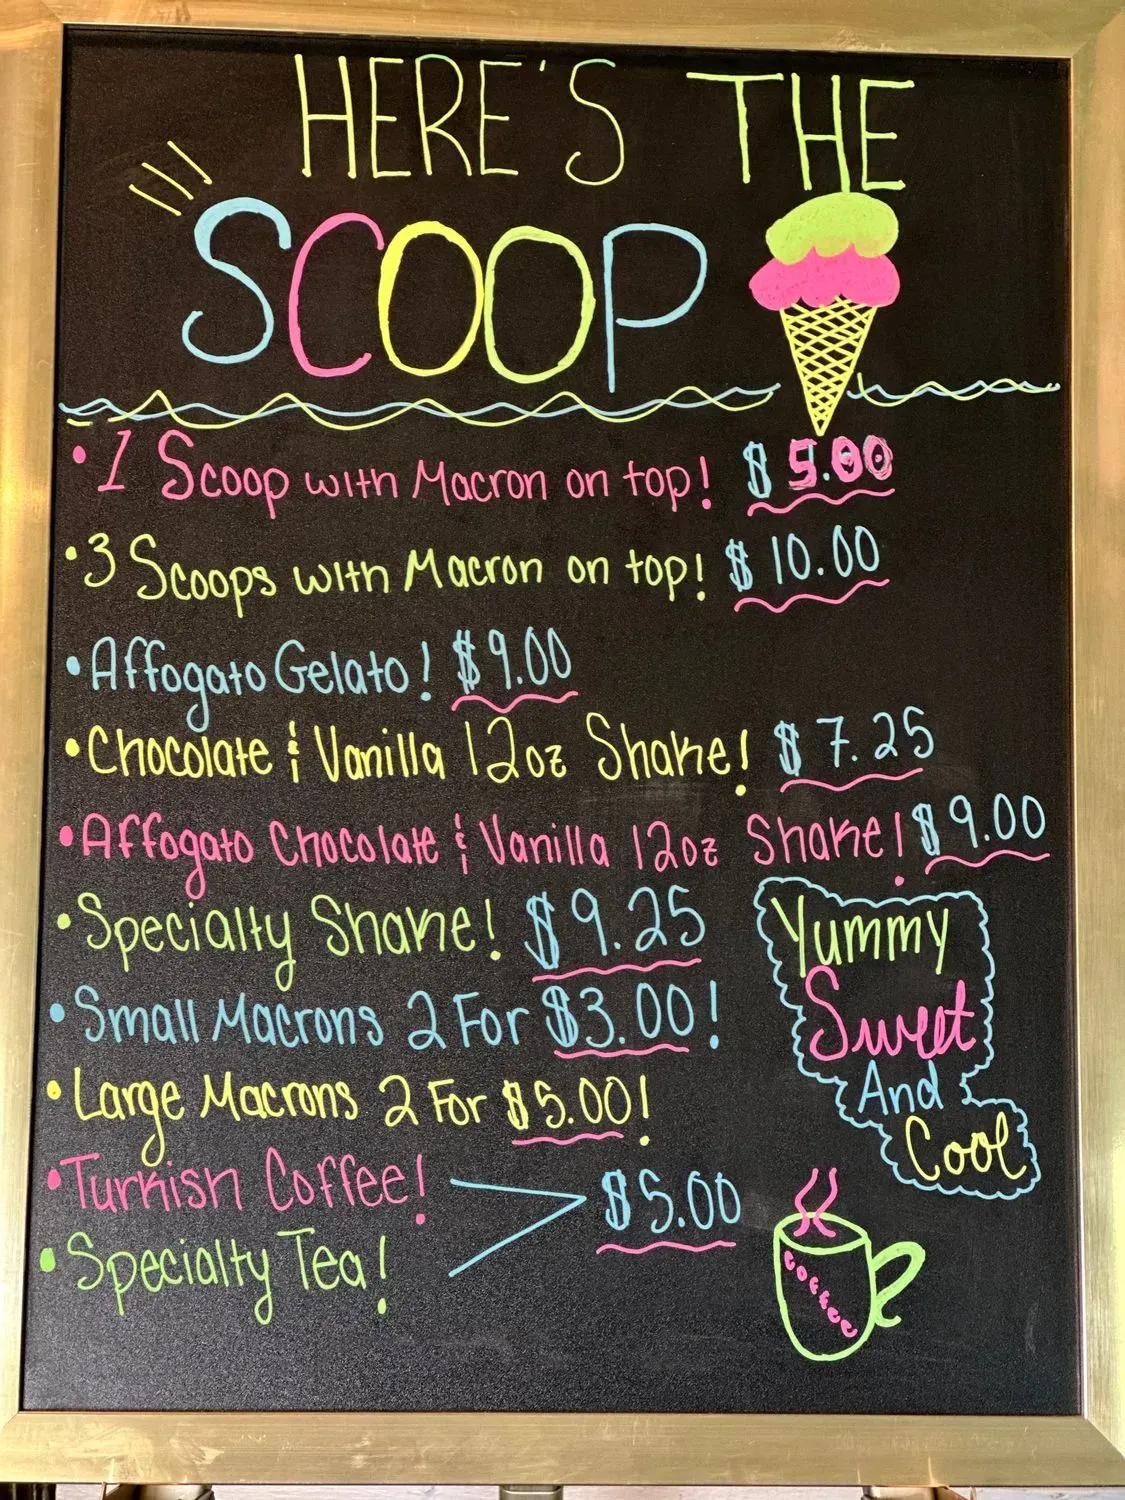 HERE'S THE
SCOOP
• 1 Scoop with Macron on top! $5.00
• 3 Scoops with Macron on top! $10.00
• Affogato Gelato! $9.00
• Chocolate & Vanilla 12oz Shake! $7.25
• Affogato Chocolate & Vanilla 12oz Shake! $9.00
• Specialty Shake! $9.25
• Small Macrons 2 For $3.00!
• Large Macrons 2 For $5.00!
• Turkish Coffee! $5.00
• Specialty Tea!
Yummy
Sweet
And
Cool
COFFEE